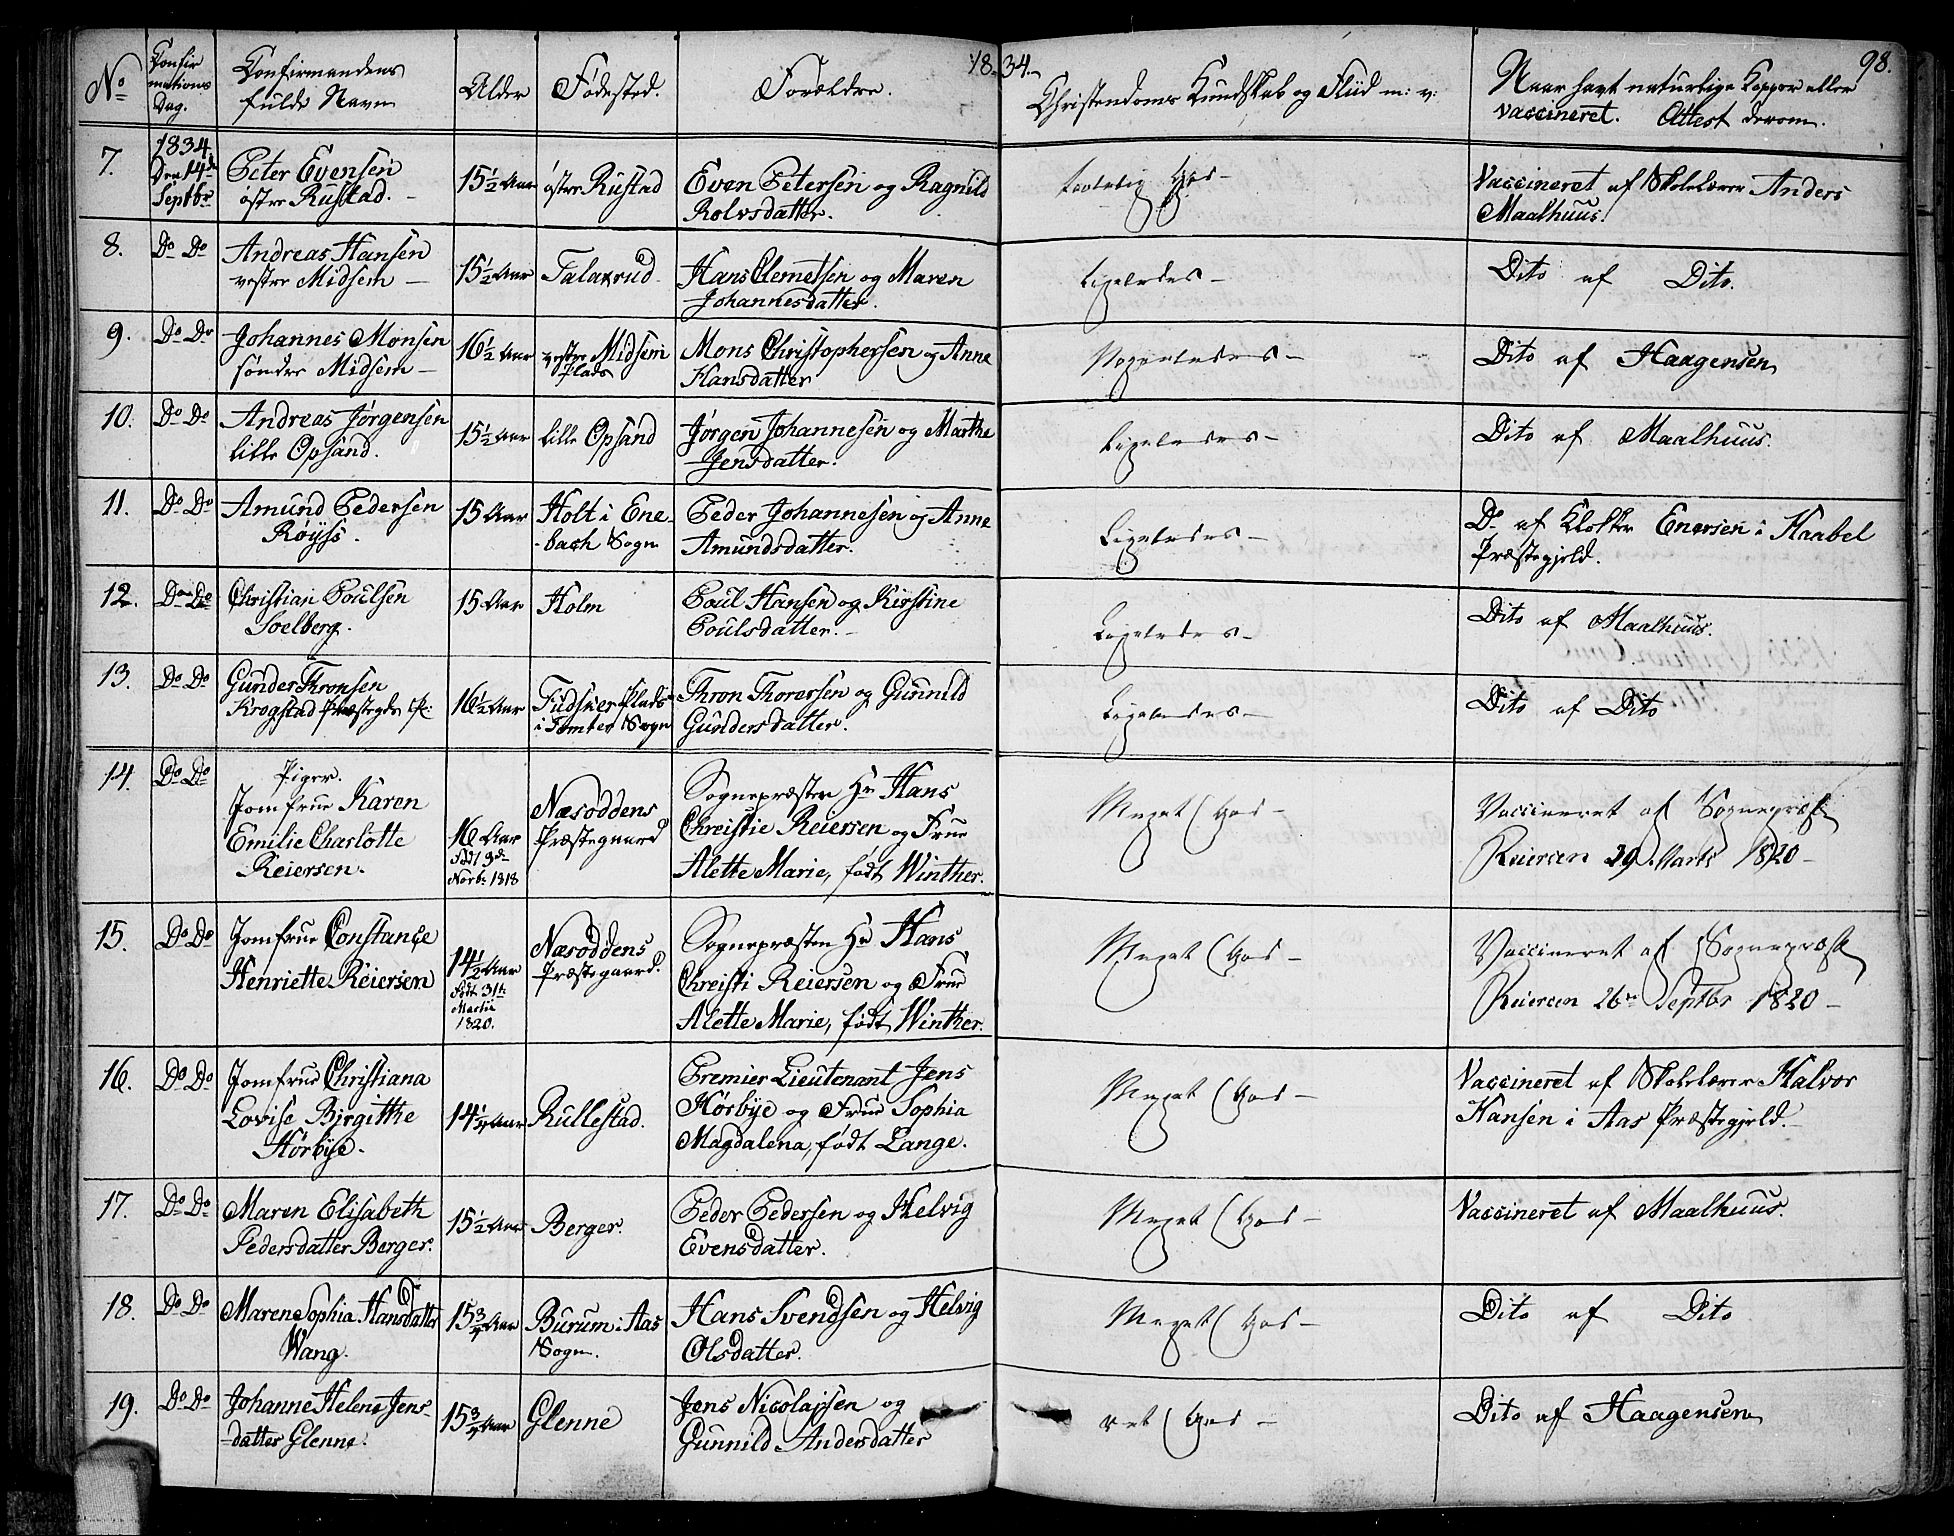 18 34.
98.
No
Confir
mations
Dag.
Confirmandens
fulde Navn
Alder
Fødested.
Forældre.
Christendoms Kundskab og Flid m: v:
Naar havt naturlige Kopper eller
vaccineret. Attest derom.
7. 1834 Den 14de Septbr
Peter Evensen
østre Rustad.
15½ Aar
østre Rustad
Even Petersen og Ragnild
Rolvsdatter.
God
Vaccineret af Skolelærer Anders
Maalhuus.
8. Do Do
Andreas Hansen
vestre Midsem
15½ Aar
Talaxrud
Hans Clemetsen og Maren
Johannesdatter.
Ligeledes
Dito af Dito.
9. Do Do
Johannes Monsen
søndre Midsem
16½ Aar
vestre Midsem
Plads
Mons Christophersen og Anne
Hansdatter
Dito af Haagensen
10. Do Do
Andreas Jørgensen
lille Opsand.
15½ Aar
lille Opsand
Jørgen Johannesen og Marthe
Jensdatter.
Ligeledes
Dito af Maalhuus.
11. Do Do
Amund Pedersen
Røyss.
15 Aar
Holt i Ene-
bach Sogn
Peder Johannesen og Anne
Amundsdatter.
Ligeledes
Do af Klokker Enersen i Haabel
Præstegjeld.
12. Do Do
Christian Poulsen
Soelberg.
15 Aar
Holm
Poul Hansen og Kirstine
Poulsdatter.
Ligeledes
Dito af Maalhuus.
13. Do Do
Gunder Thronsen
Krogstad
16½ Aar
Plads
i Tomter Sogn
Thron Thoresen og Gunnild
Gundersdatter.
Ligeledes
Dito af Dito
14. Do Do
Piger.
Jomfrue Karen
Emilie Charlotte
Reiersen.
16 Aar
født 3de
Novbr 1818
Næsoddens
Præstegaard
Sognepræsten Hr Hans
Christie Reiersen og Frue
Alette Marie, født Winther.
Meget God
Vaccineret af Sognepræst
Reiersen 29 Marts 1820
15. Do Do
Jomfrue Constance
Henriette Reiersen
14½ Aar
født 31te
Martii
1820.
Næsoddens
Præstegaard.
Sognepræsten Hr Hans
Christi Reiersen og Frue
Alette Marie, født Winther.
Meget God
Vaccineret af Sognepræst
Reiersen 26de Septbr 1820
16. Do Do
Jomfrue Christiana
Lovise Birgitthe
Hørbye.
14¼ Aar
Rullestad.
Premier Lieutenant Jens
Hørbye og Frue Sophia
Magdalena, født Lange.
Meget God
Vaccineret af Skolelærer Halvor
Hansen i Aas Præstegjeld.
17. Do Do
Maren Elisabeth
Pedersdatter Berger.
15½ Aar
Berger.
Peder Pedersen og Helvig
Evensdatter.
Meget God
Vaccineret af Maalhuus.
18. Do Do
Maren Sophia Hansdatter
Wang.
15¾ Aar
Burum i Aas
Sogn.
Hans Svendsen og Helvig
Olsdatter.
Meget God
Dito af Dito
19. Do Do
Johanne Helene Jens-
datter Glenne.
15¾ Aar
Glenne
Jens Nicolajsen og
Gunnild Andersdatter
God
Dito af Haagensen